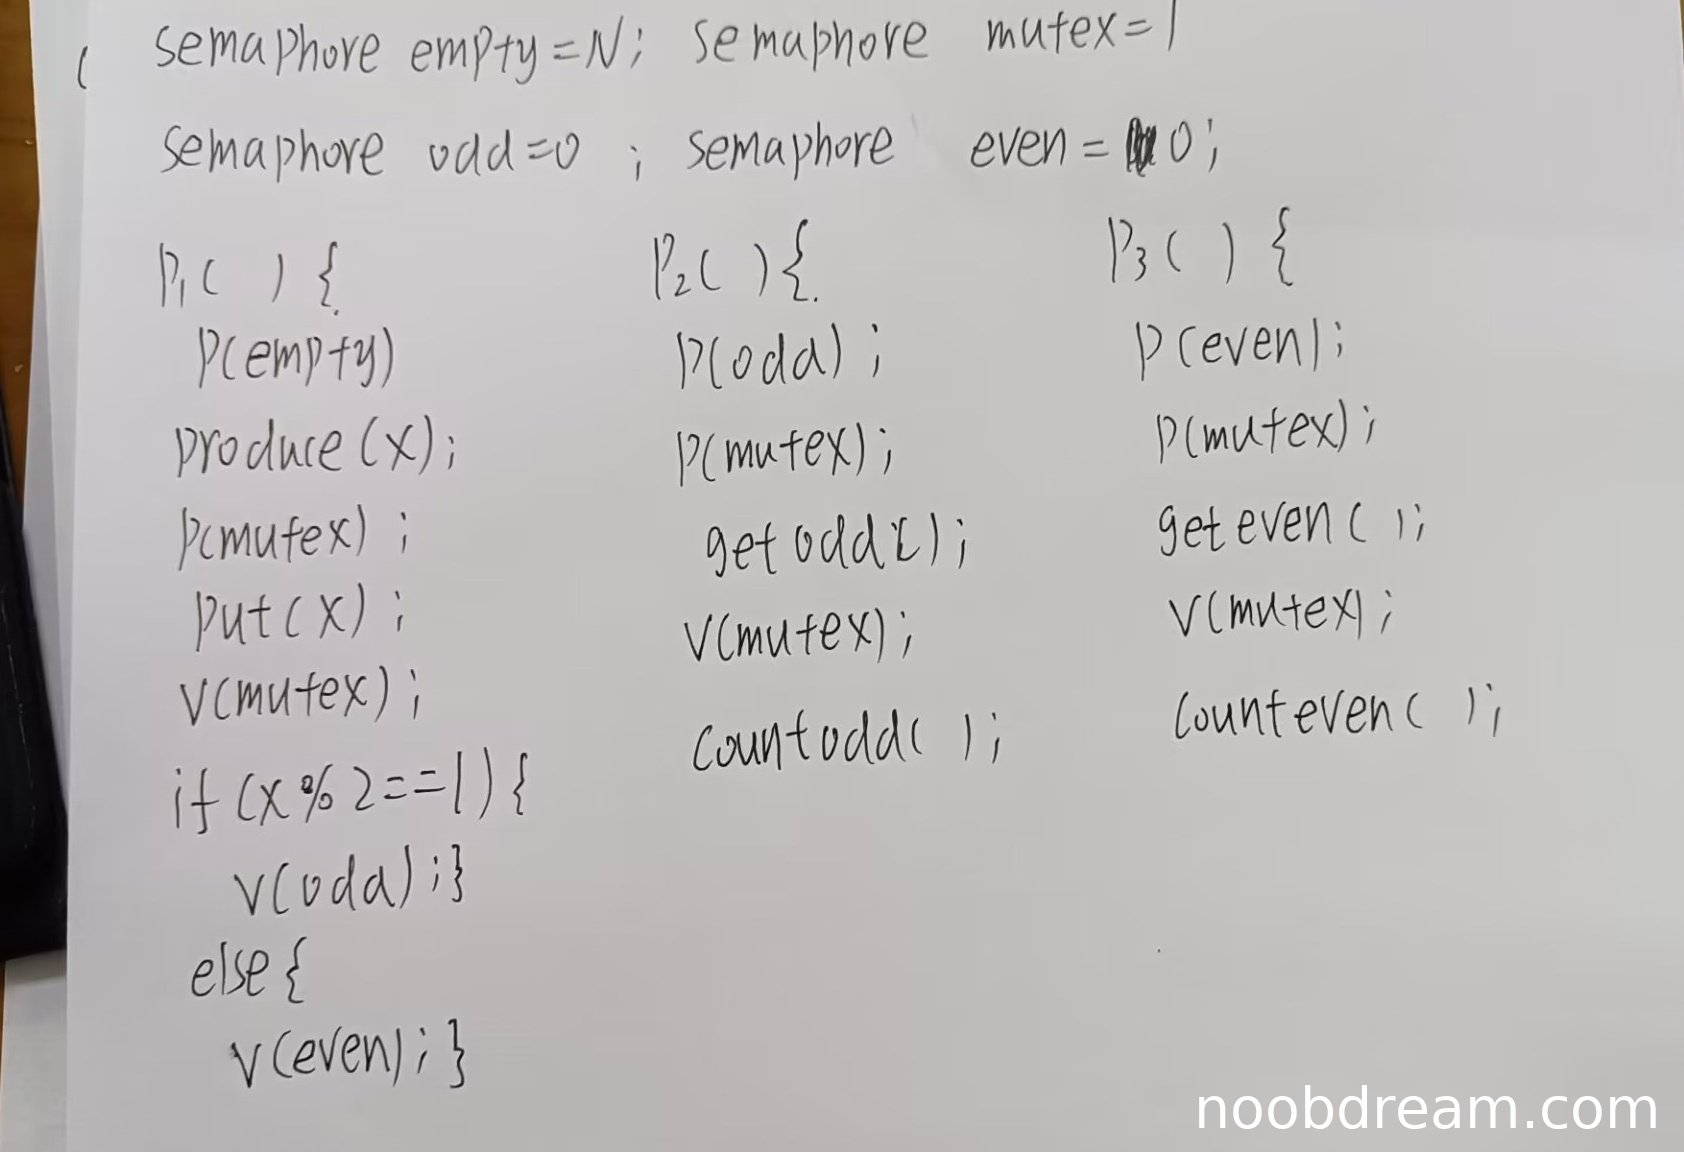 ( semaphore empty=N; semaphore mutex=1
semaphore odd=0 ; semaphore even = 0;
P1( ) {
P(empty)
produce(x);
P(mutex) ;
put(x) ;
V(mutex) ;
if (x%2==1) {
V(odd) ; }
else {
V(even) ; }
P2( ) {
P(odd) ;
P(mutex);
getodd( );
V(mutex);
countodd( ) ;
P3( ) {
P(even);
P(mutex);
geteven( );
V(mutex);
counteven( );
noobdream.com